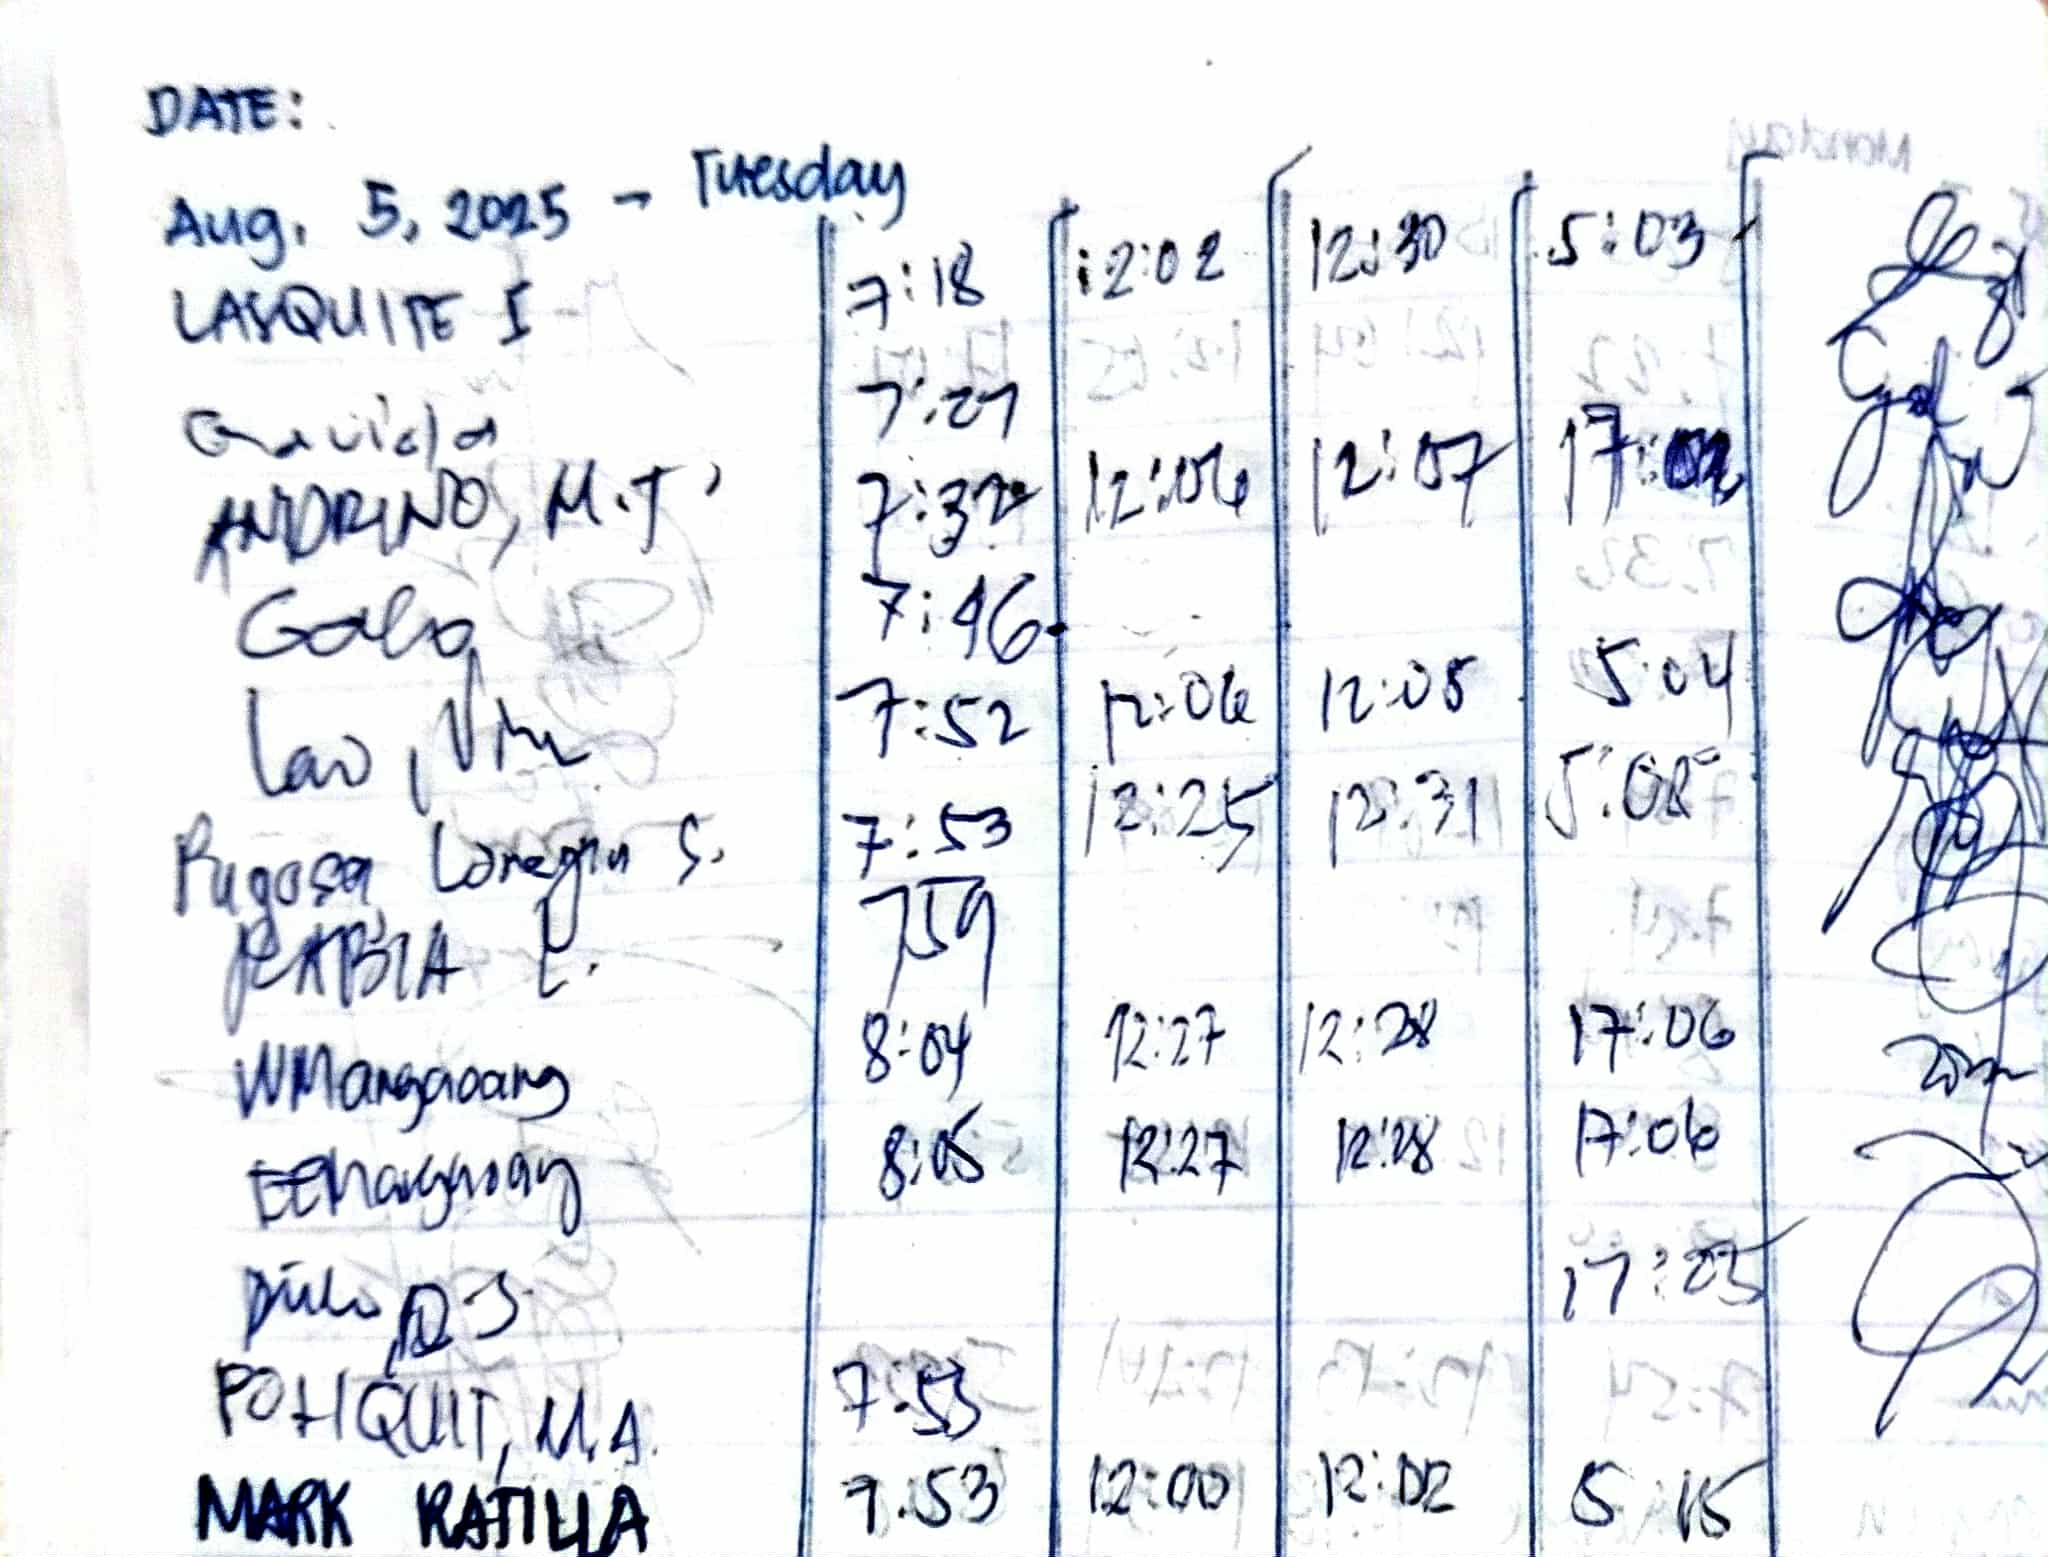 DATE:
Aug. 5, 2025 - Tuesday
LASQUITE I 7:18 12:02 12:30 5:03
Gravida 7:27
ANDRINO, M.T. 7:32 12:06 12:07 17:02
Galo 7:46
Lao, 7:52 12:06 12:05 5:04
Rugosa S. 7:53 12:25 12:31 5:08
L. 759
WMangaoang 8:04 12:27 12:28 17:06
EEMangaoang 8:05 12:27 12:28 17:06
17:05
POTIQUIT, M.A. 7:53
MARK RATILLA 7:53 12:00 12:02 5:15